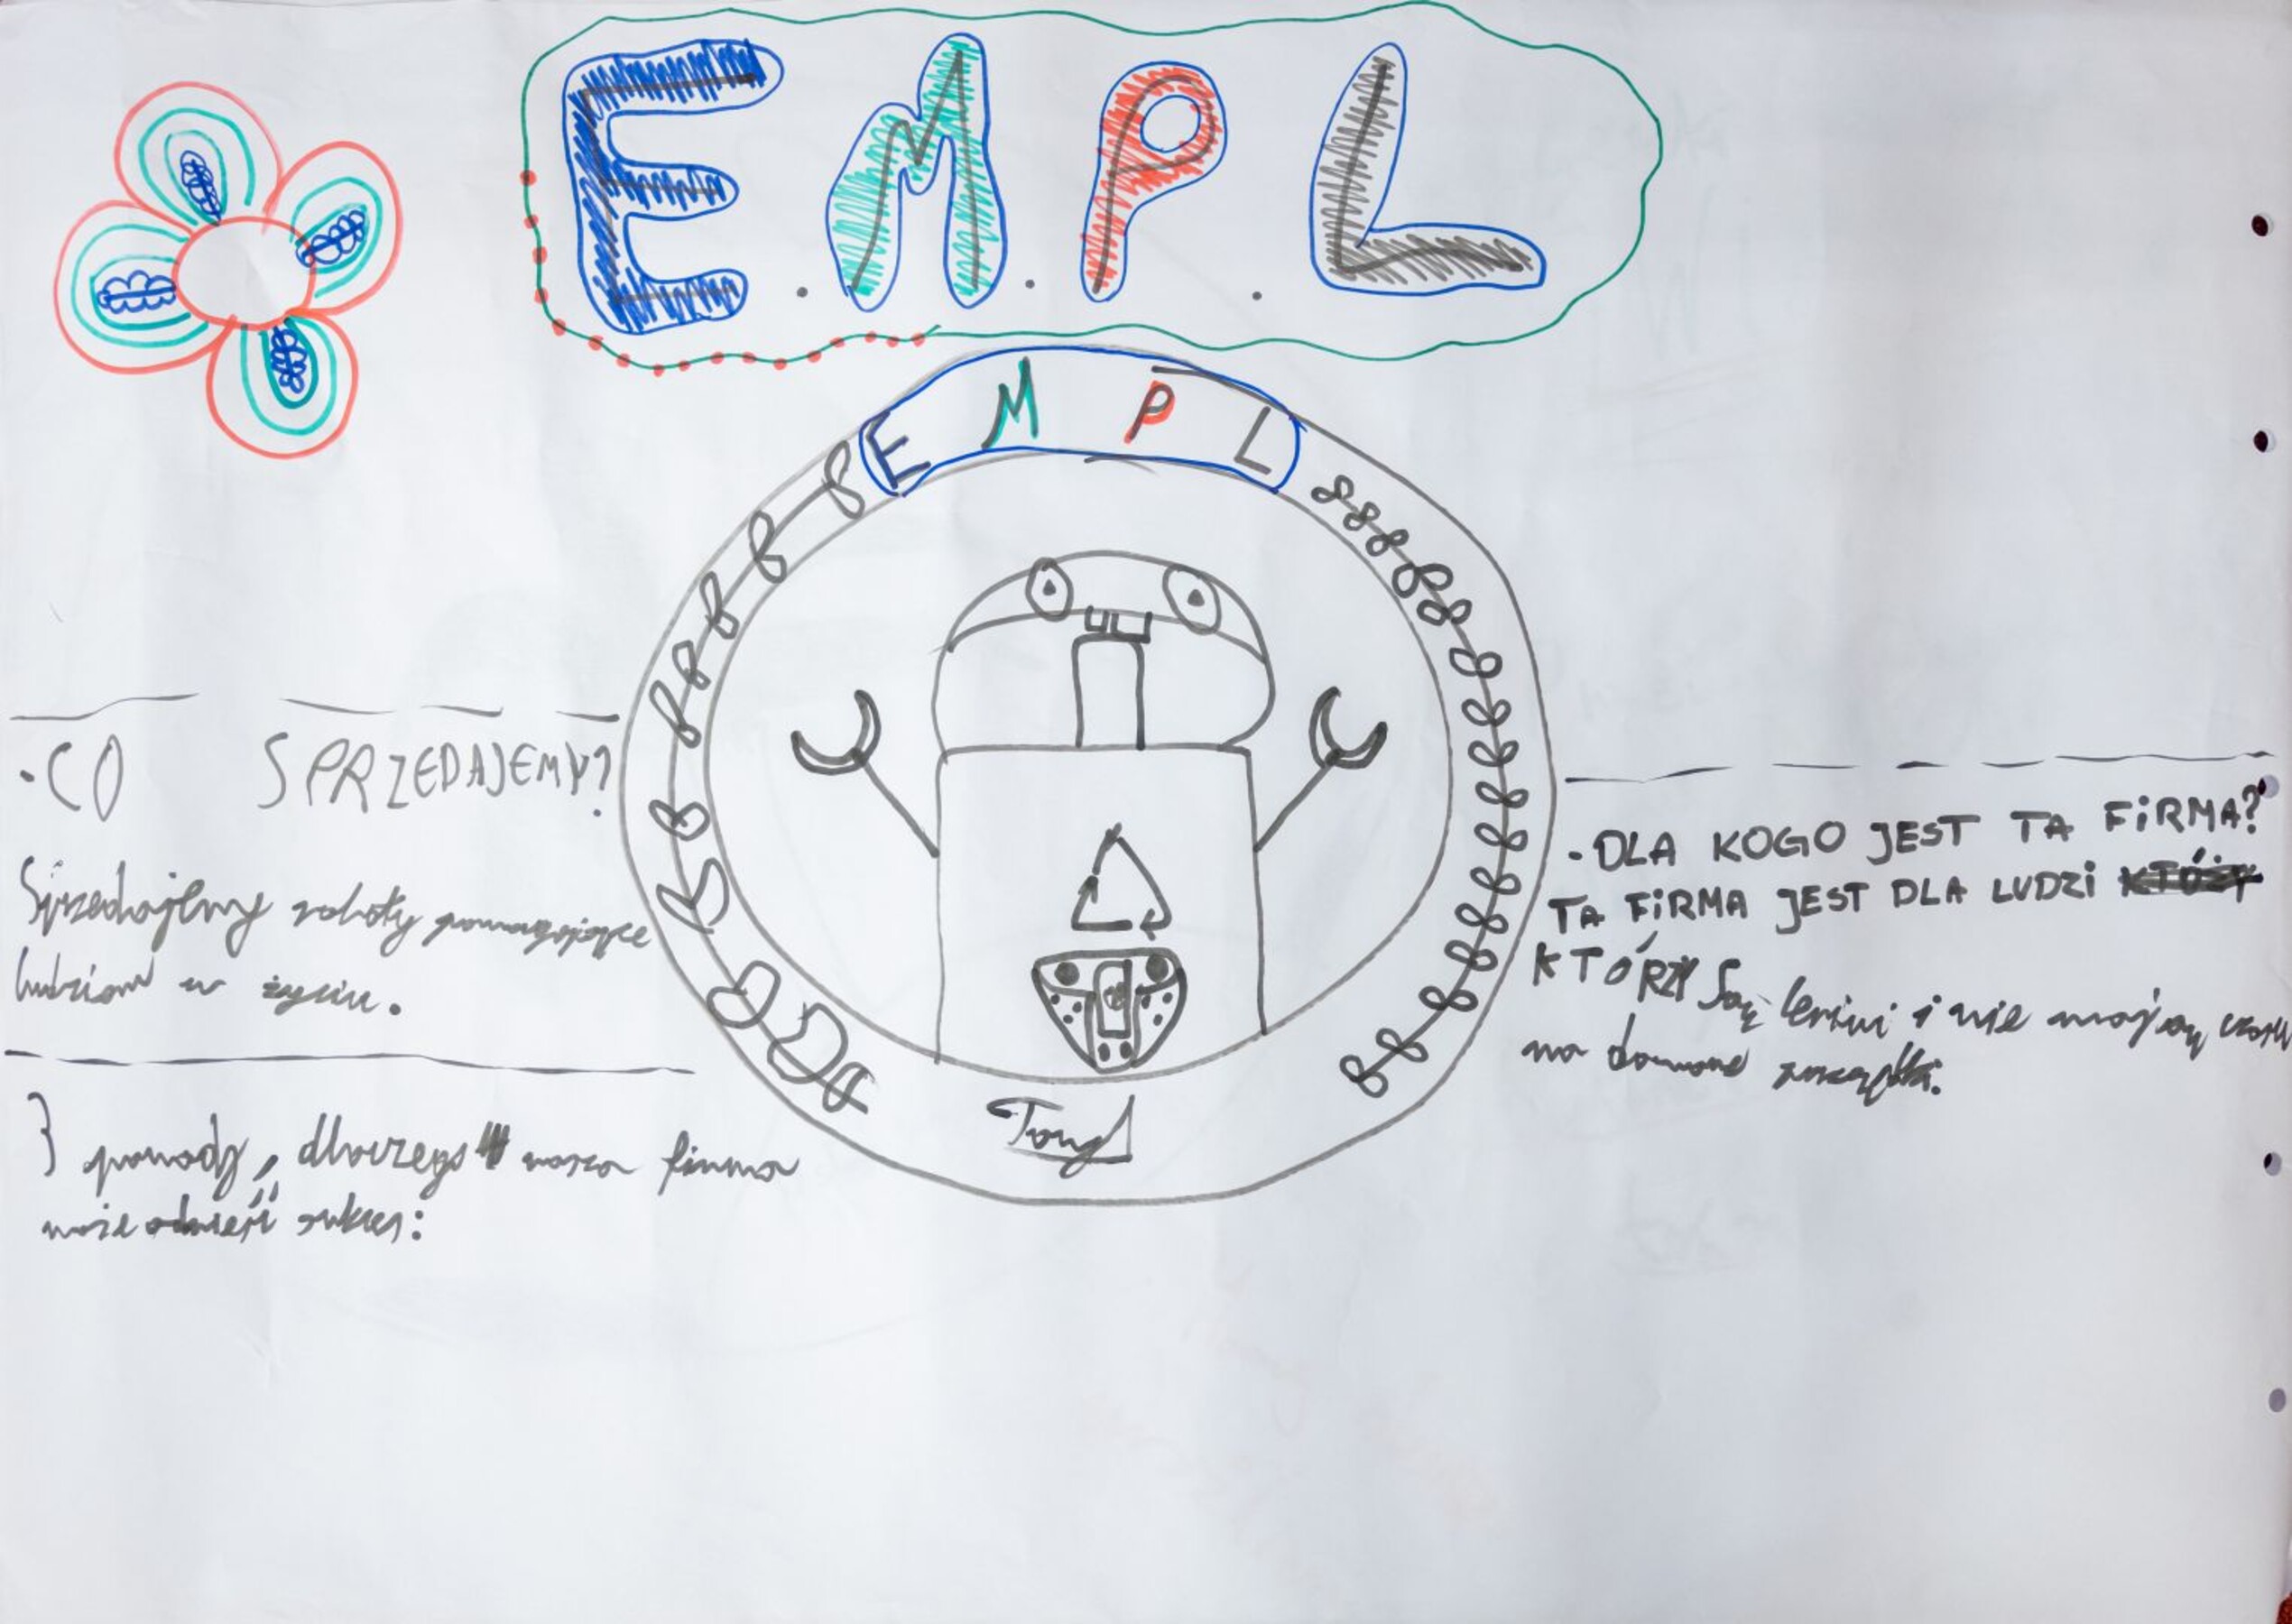 E.M.P.L
E M P L
• CO SPRZEDAJEMY?
Sprzedajemy roboty pomagające
ludziom w życiu.
3 powody, dlaczego nasza firma
może odnieść sukces:
• DLA KOGO JEST TA FiRMA?
TA FiRMA JEST DLA LUDZi KTÓŻY
KTÓRZY Są leniwi i nie mają czasu
na domowe porządki.